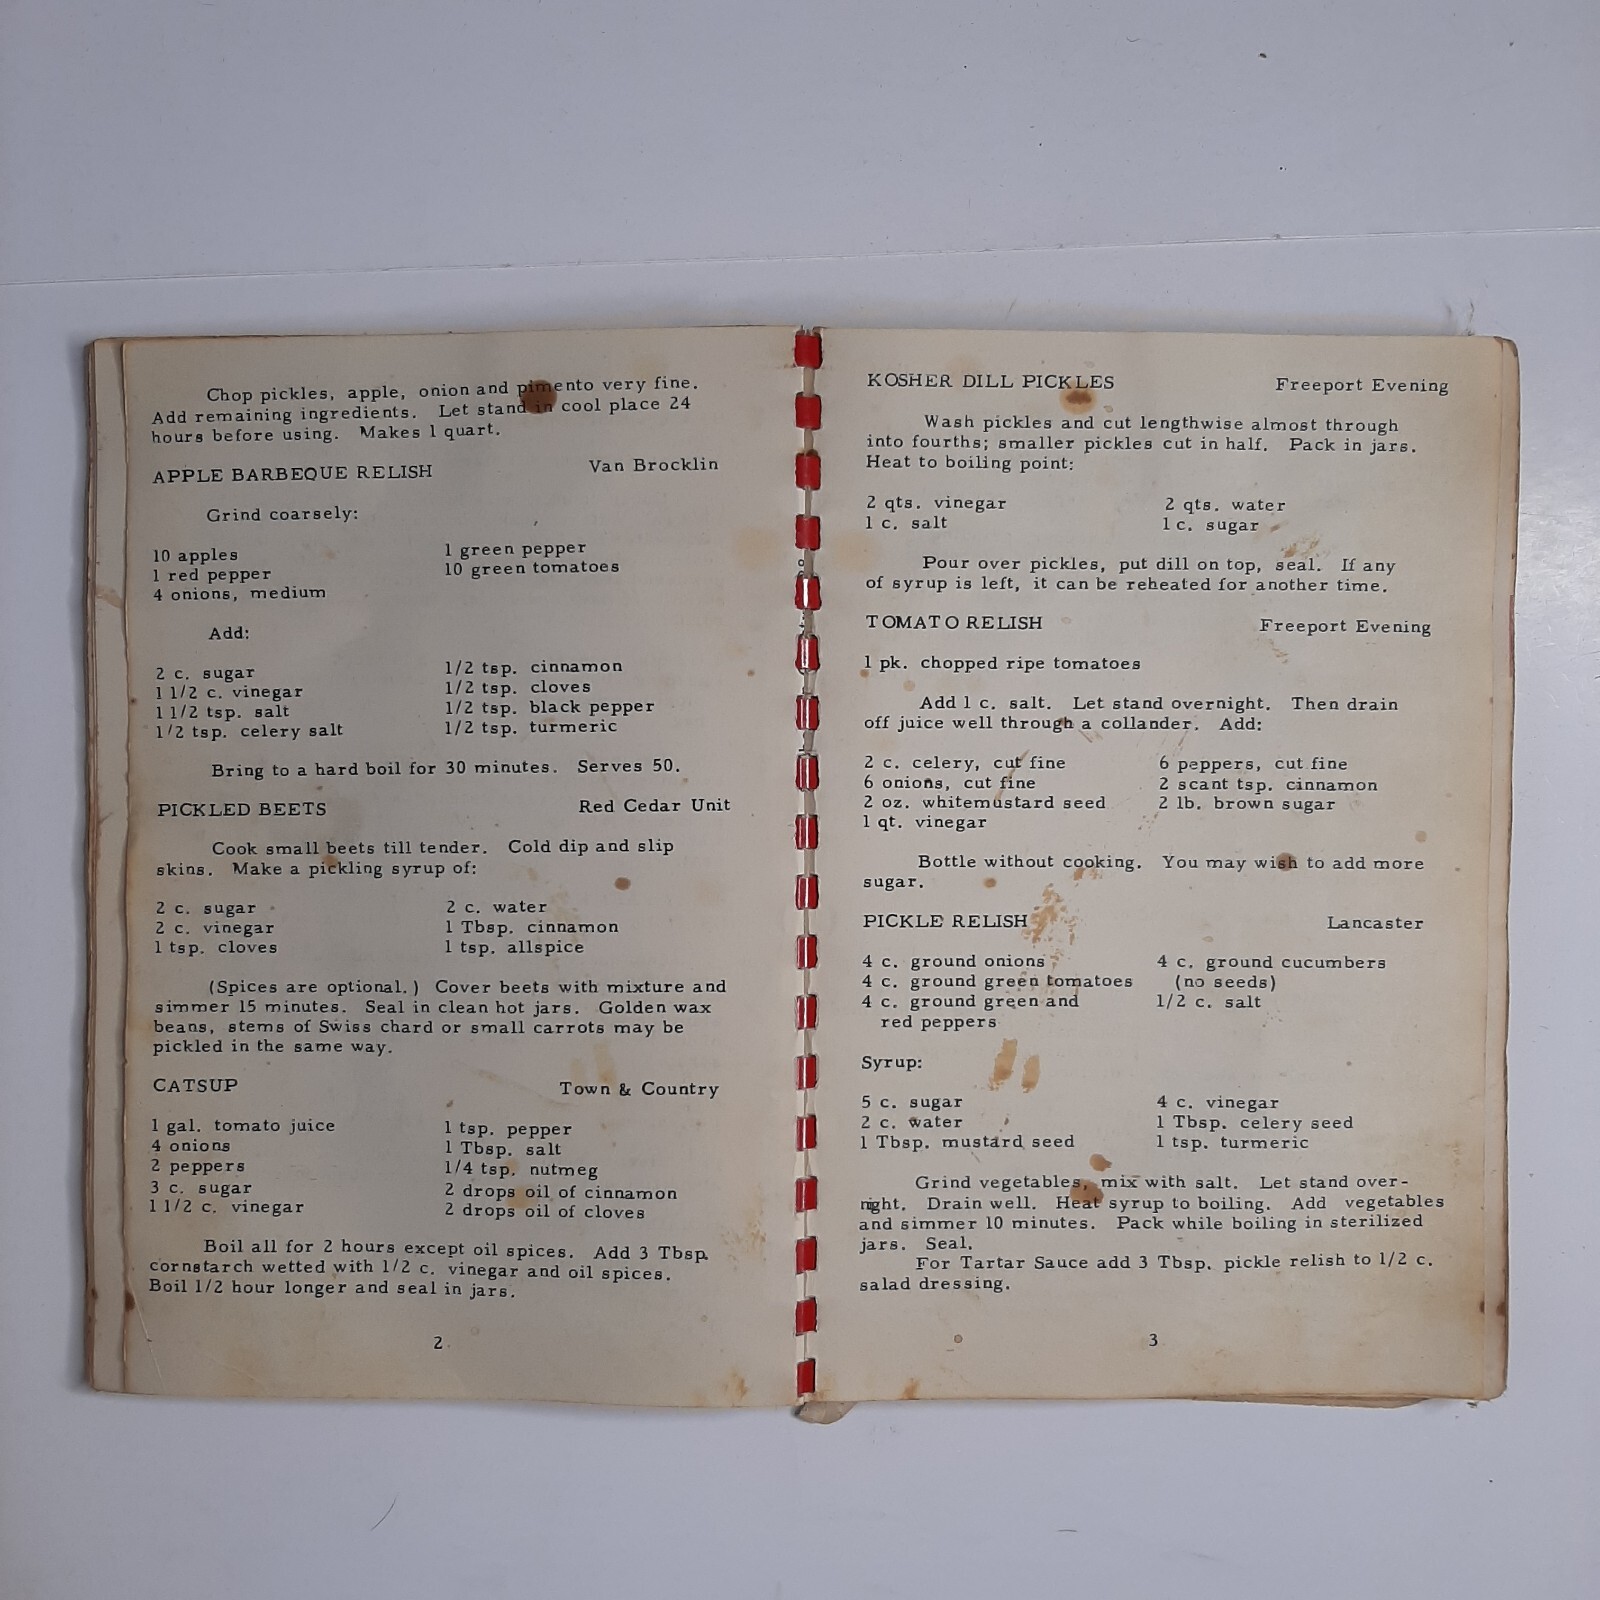 Chop pickles, apple, onion and pimento very fine.
Add remaining ingredients. Let stand in cool place 24
hours before using. Makes 1 quart.
APPLE BARBEQUE RELISH Van Brocklin
Grind coarsely:
10 apples 1 green pepper
1 red pepper 10 green tomatoes
4 onions, medium
Add:
2 c. sugar 1/2 tsp. cinnamon
1 1/2 c. vinegar 1/2 tsp. cloves
1 1/2 tsp. salt 1/2 tsp. black pepper
1/2 tsp. celery salt 1/2 tsp. turmeric
Bring to a hard boil for 30 minutes. Serves 50.
PICKLED BEETS Red Cedar Unit
Cook small beets till tender. Cold dip and slip
skins. Make a pickling syrup of:
2 c. sugar 2 c. water
2 c. vinegar 1 Tbsp. cinnamon
1 tsp. cloves 1 tsp. allspice
(Spices are optional.) Cover beets with mixture and
simmer 15 minutes. Seal in clean hot jars. Golden wax
beans, stems of Swiss chard or small carrots may be
pickled in the same way.
CATSUP Town & Country
1 gal. tomato juice 1 tsp. pepper
4 onions 1 Tbsp. salt
2 peppers 1/4 tsp. nutmeg
3 c. sugar 2 drops oil of cinnamon
1 1/2 c. vinegar 2 drops oil of cloves
Boil all for 2 hours except oil spices. Add 3 Tbsp.
cornstarch wetted with 1/2 c. vinegar and oil spices.
Boil 1/2 hour longer and seal in jars.
2
KOSHER DILL PICKLES Freeport Evening
Wash pickles and cut lengthwise almost through
into fourths; smaller pickles cut in half. Pack in jars.
Heat to boiling point:
2 qts. vinegar 2 qts. water
1 c. salt 1 c. sugar
Pour over pickles, put dill on top, seal. If any
of syrup is left, it can be reheated for another time.
TOMATO RELISH Freeport Evening
1 pk. chopped ripe tomatoes
Add 1 c. salt. Let stand overnight. Then drain
off juice well through a collander. Add:
2 c. celery, cut fine 6 peppers, cut fine
6 onions, cut fine 2 scant tsp. cinnamon
2 oz. whitemustard seed 2 lb. brown sugar
1 qt. vinegar
Bottle without cooking. You may wish to add more
sugar.
PICKLE RELISH Lancaster
4 c. ground onions 4 c. ground cucumbers
4 c. ground green tomatoes (no seeds)
4 c. ground green and 1/2 c. salt
red peppers
Syrup:
5 c. sugar 4 c. vinegar
2 c. water 1 Tbsp. celery seed
1 Tbsp. mustard seed 1 tsp. turmeric
Grind vegetables, mix with salt. Let stand over-
night. Drain well. Heat syrup to boiling. Add vegetables
and simmer 10 minutes. Pack while boiling in sterilized
jars. Seal.
For Tartar Sauce add 3 Tbsp. pickle relish to 1/2 c.
salad dressing.
3